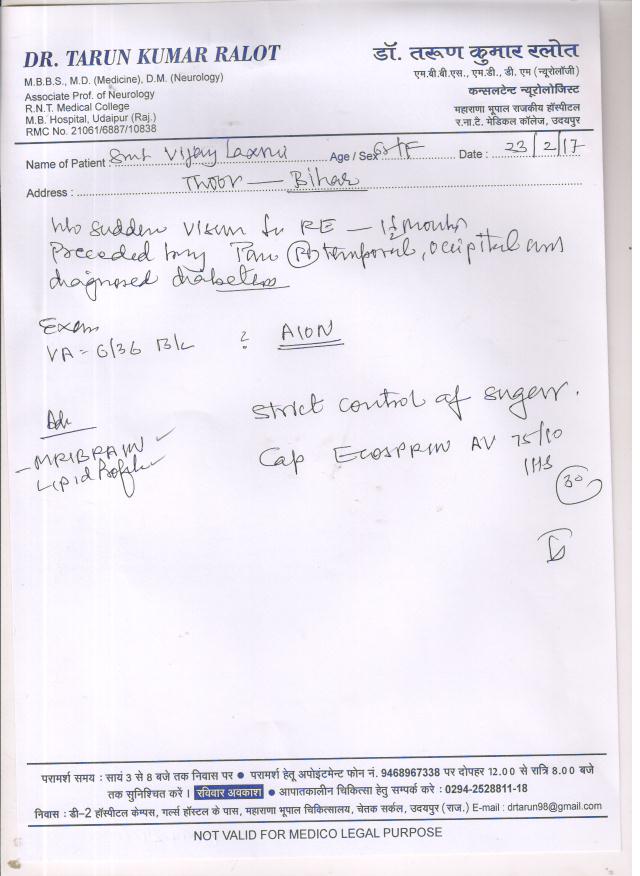 DR. TARUN KUMAR RALOT
M.B.B.S., M.D. (Medicine), D.M. (Neurology)
Associate Prof. of Neurology
R.N.T. Medical College
M.B. Hospital, Udaipur (Raj.)
RMC No. 21061/6887/10838
डॉ. तरूण कुमार रलोत
एम.बी.बी.एस., एम.डी., डी. एम (न्यूरोलॉजी)
कन्सलटेन्ट न्यूरोलोजिस्ट
महाराणा भूपाल राजकीय हॉस्पीटल
र.ना.टे. मेडिकल कॉलेज, उदयपुर
Name of Patient : Smt Vijay Laxmi Age / Sex F Date : 23/2/17
Address : Thoor — Bihar
H/o sudden vision in RE — months
Preceded by Pain Rt temporal, occipital and
diagnosed diabetes
Exam
VA = 6/36 B/L ? AION
Adv
strict control of sugar.
- MRI BRAIN
Lipid Profile
Cap ECOSPRIN AV 75/10
1 HS
30
परामर्श समय : सायं 3 से 8 बजे तक निवास पर ● परामर्श हेतू अपोइंटमेन्ट फोन नं. 9468967338 पर दोपहर 12.00 से रात्रि 8.00 बजे
तक सुनिश्चित करें । रविवार अवकाश ● आपातकालीन चिकित्सा हेतु सम्पर्क करे : 0294-2528811-18
निवास : डी–2 हॉस्पीटल केम्पस, गर्ल्स हॉस्टल के पास, महाराणा भूपाल चिकित्सालय, चेतक सर्कल, उदयपुर (राज.) E-mail : drtarun98@gmail.com
NOT VALID FOR MEDICO LEGAL PURPOSE